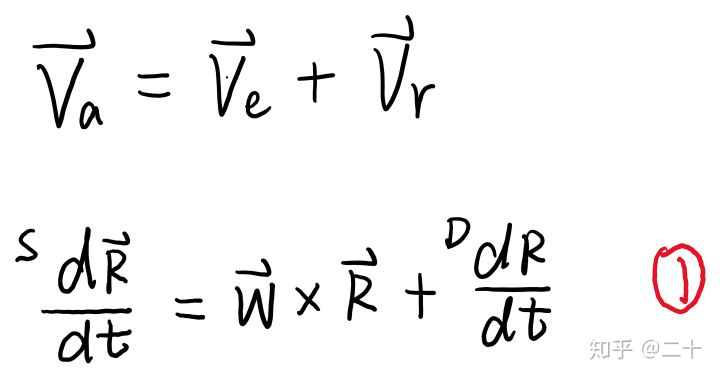 $\vec{V}_a = \vec{V}_e + \vec{V}_r$
${}^{S}\frac{d\vec{R}}{dt} = \vec{W} \times \vec{R} + {}^{D}\frac{dR}{dt}$ ①
知乎 @二十